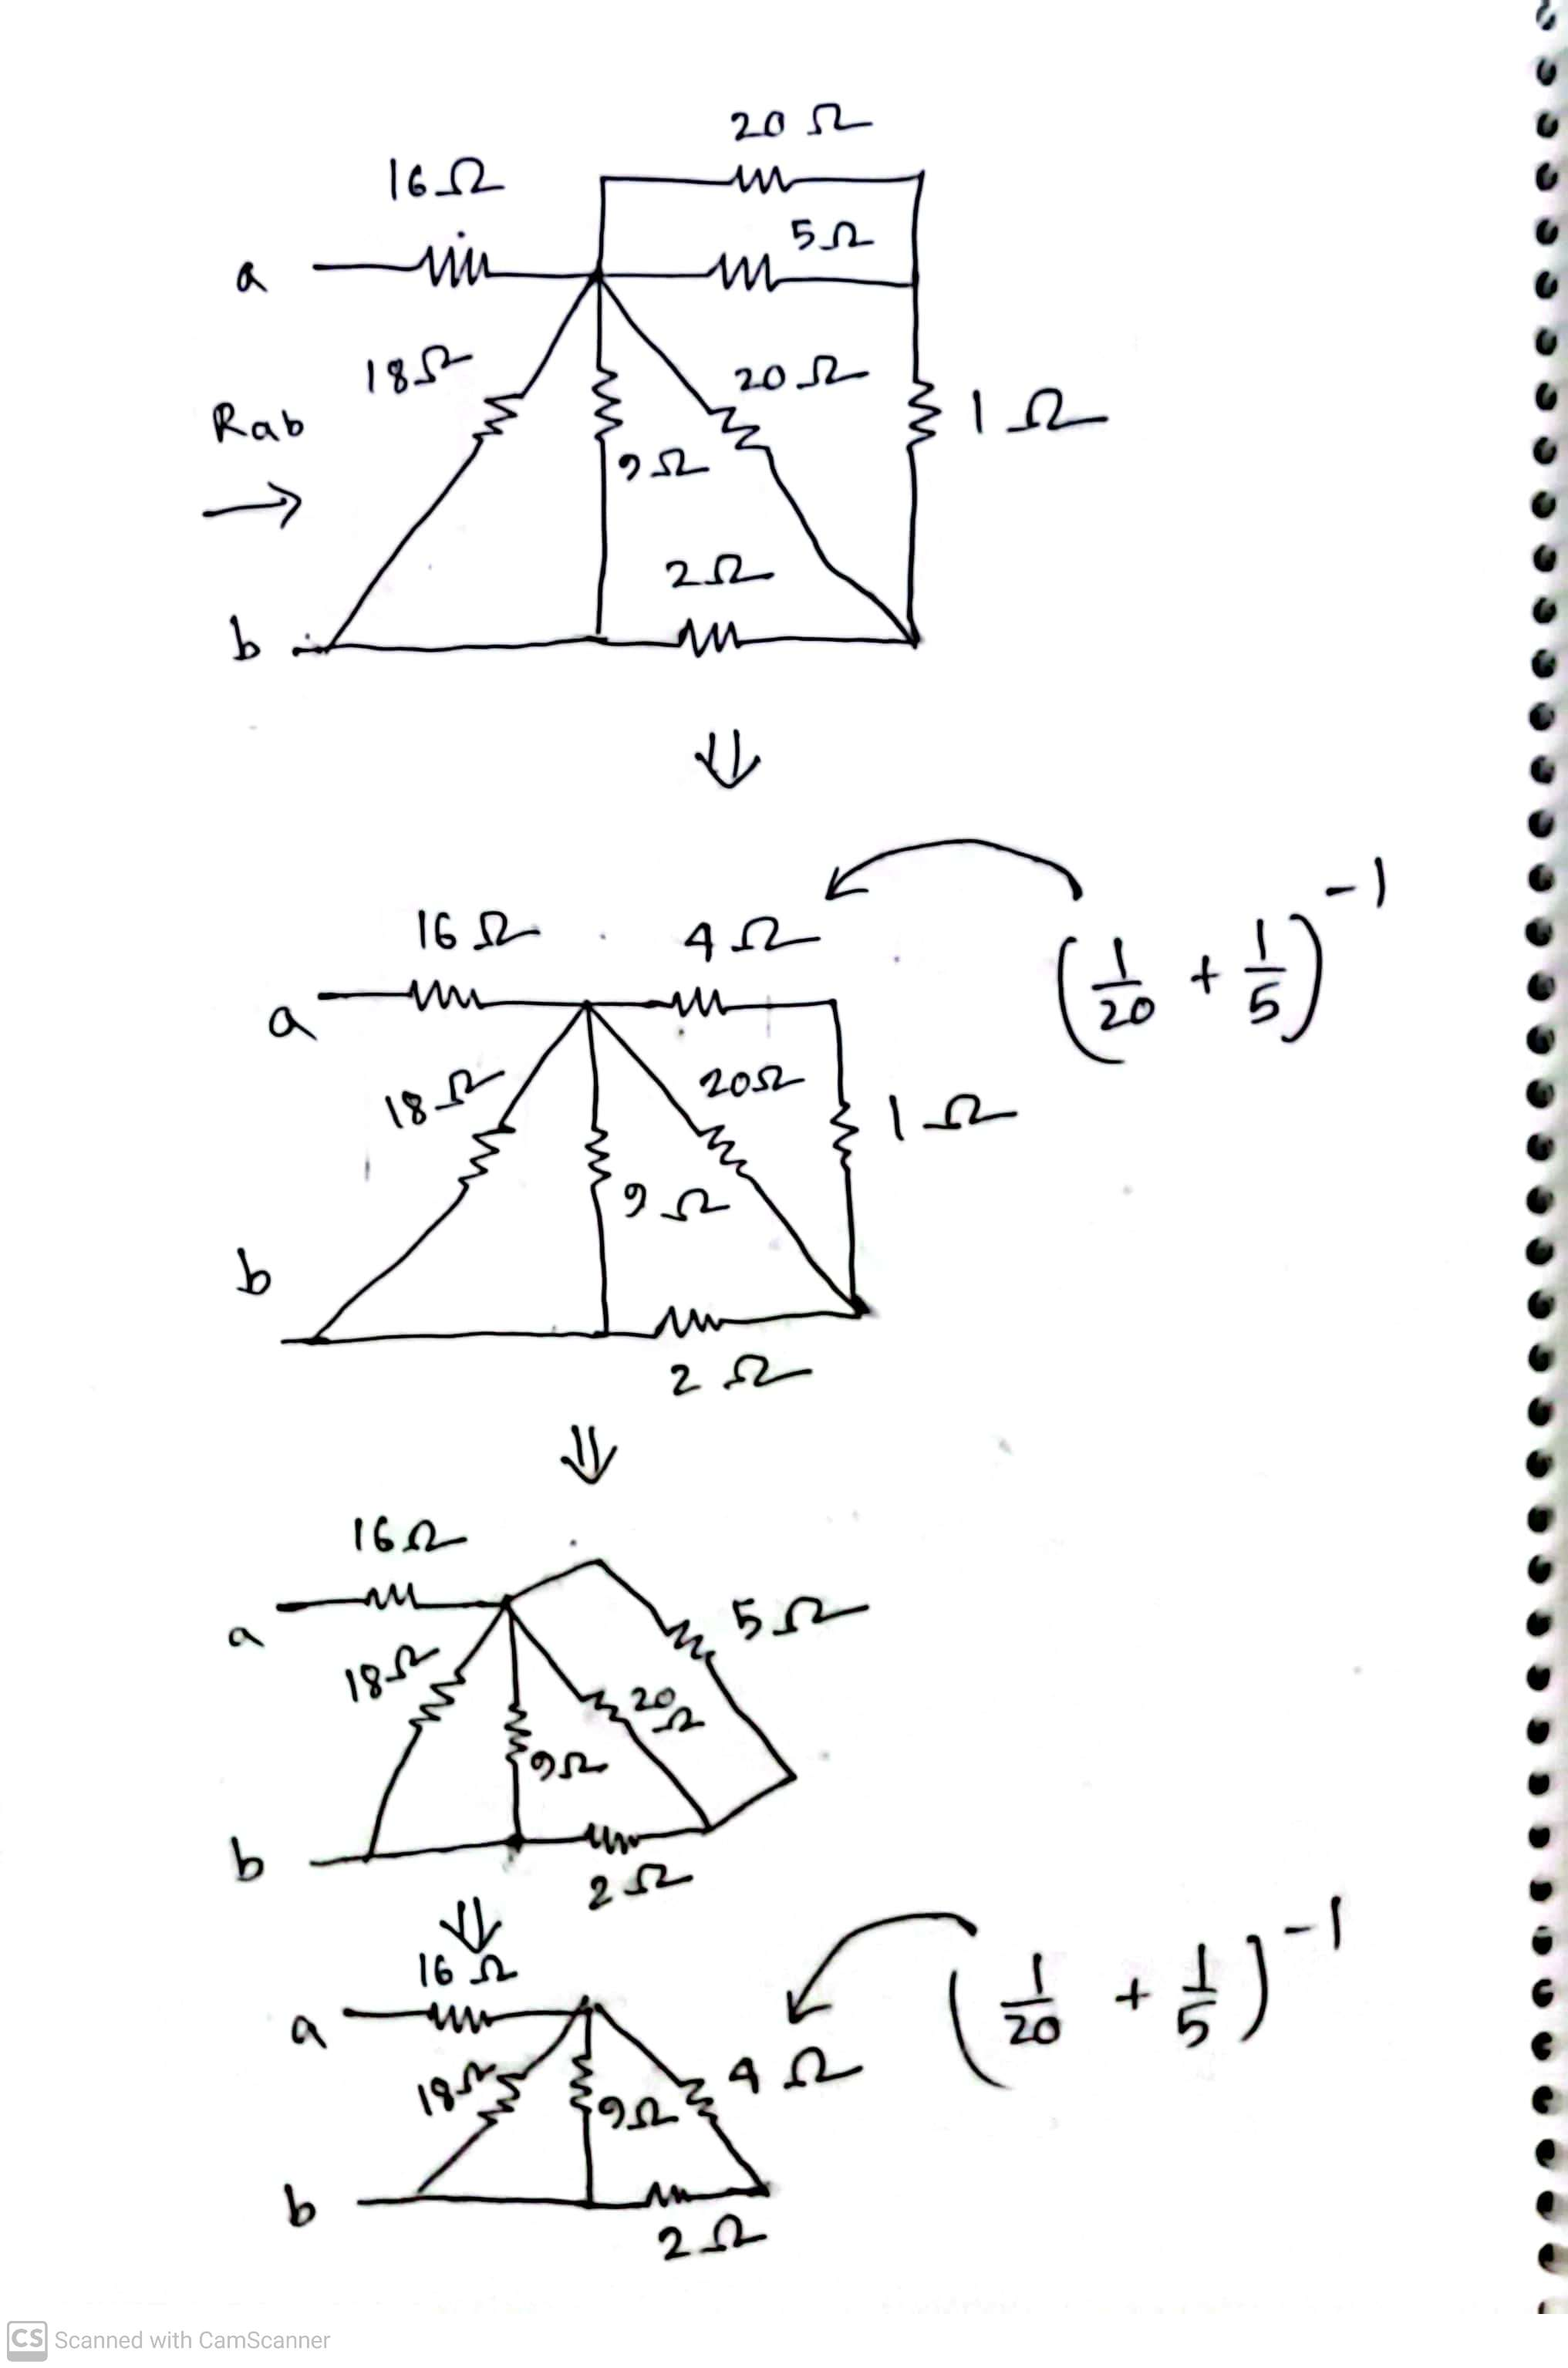 20 Ω
16 Ω
5 Ω
a
18 Ω
20 Ω
Rab
1 Ω
9 Ω
2 Ω
b
16 Ω
4 Ω
(1/20 + 1/5)^-1
a
18 Ω
20 Ω
1 Ω
9 Ω
b
2 Ω
16 Ω
5 Ω
a
18 Ω
20 Ω
9 Ω
b
2 Ω
16 Ω
(1/20 + 1/5)^-1
a
18 Ω
4 Ω
9 Ω
b
2 Ω
CS Scanned with CamScanner